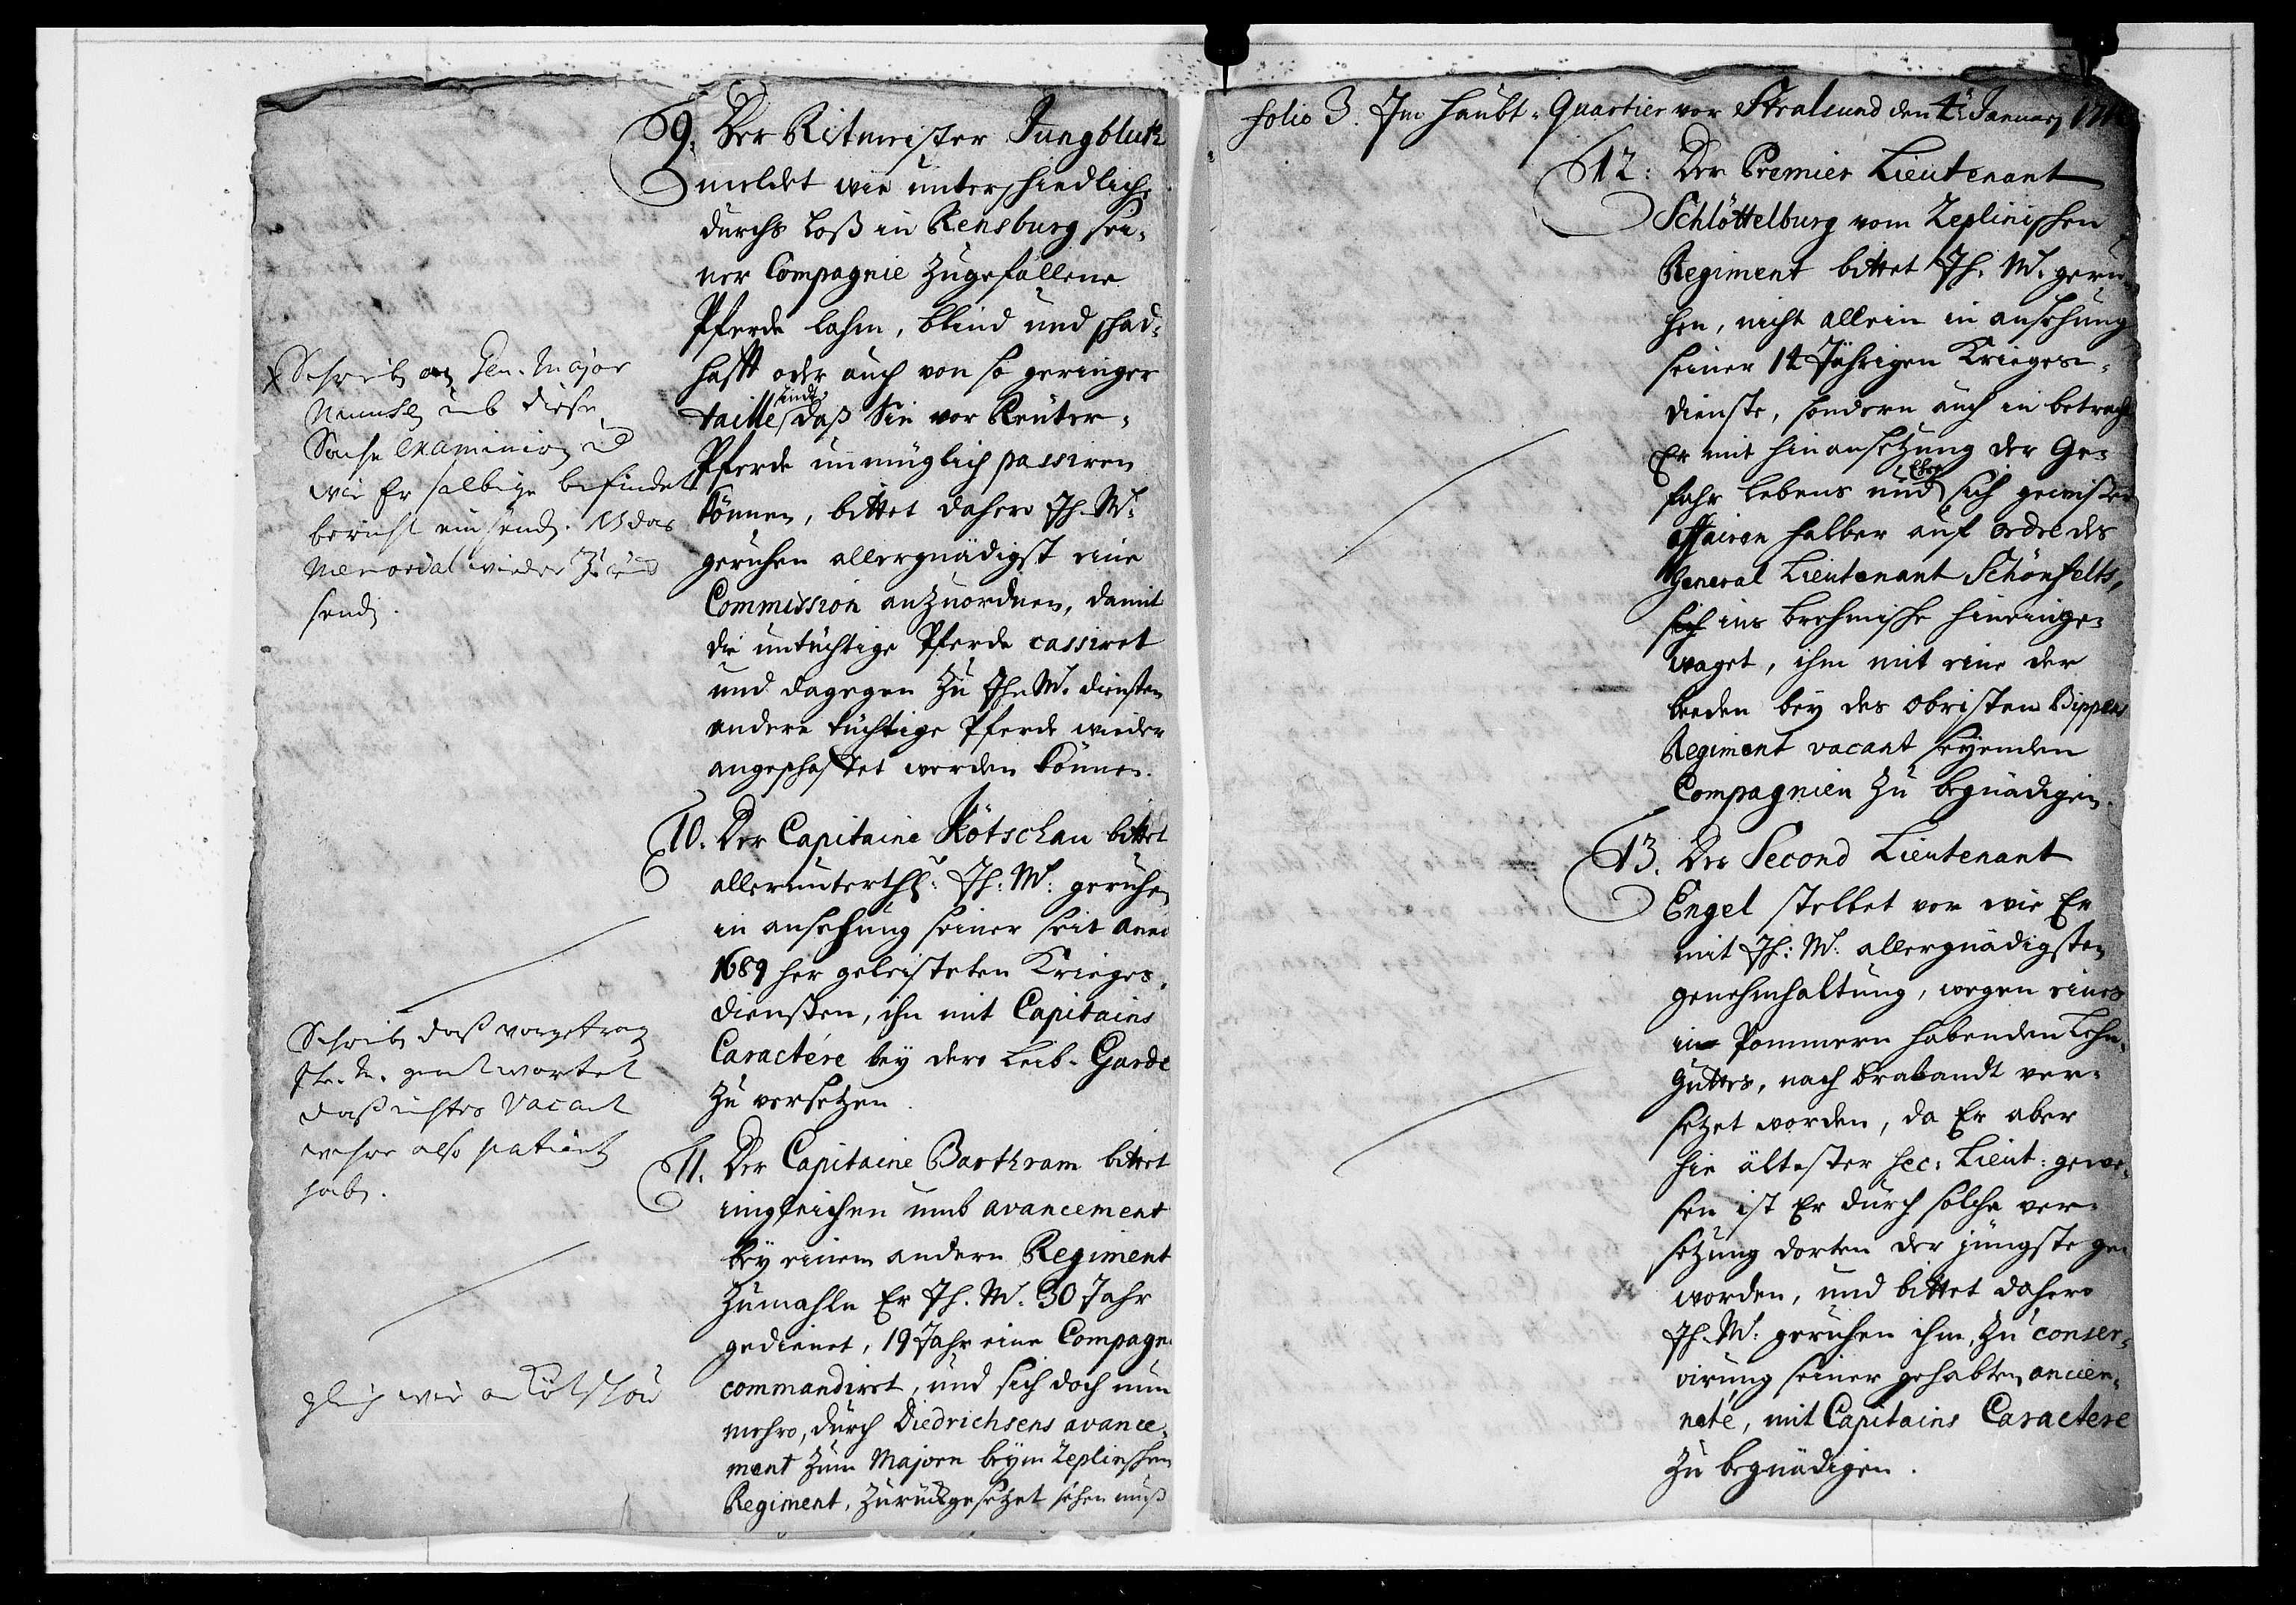 9. Der Ritmeister Jungbluth
meldet wie unterschiedliche
durchs loß in Rensburg sei-
ner Compagnie zugefallene
Pferde lahm, blind und schad-
hafft oder auch von so geringer
taille sindt, daß Sie vor Reuter-
Pferde unmüglich passiren
können, bittet dahero Ih. M.
geruhen allergnädigst eine
Commission anzuordnen, damit
die untüchtige Pferde cassiret
und dagegen zu Ih. M. diensten
andere tüchtige Pferde wieder
angeschaffet werden können.
Schreib an Gen. Major
umb diese
Sache examinir
wie Er selbige befindet
bericht einsend. NB das
Memorial wieder
send.
10. Der Capitaine Kötschau bittet
allerunterth: Ih: M: geruhen
in ansehung seiner seit Anno
1689 her geleisteten Krieges-
diensten, ihn mit Capitains
Caractére bey dero Leib-Garde
zu versetzen.
Schreib daß vorgetrag
geantwortet
daß nichtes vacant
wehre also patientz
hab.
11. Der Capitaine Barthram bittet
imgleichen umb avancement
bey einem andern Regiment
zumahln Er Ih. M. 30 Jahr
gedienet, 19 Jahr eine Compagn
commandiret, und sich doch nun
mehro, durch Diedrichsens avance-
ment zum Majorn beym Zeplinschen
Regiment, zurückgesetzet sehen muß
gleich wie an Kötschau
folio 3. Im Haubt-Quartier vor Stralsund den 4t Januarj 171
12: Der Premier Lieutenant
Schlöttelburg vom Zeplinischen
Regiment bittet Ih. M. geru-
hen, nicht allein in ansehung
seiner 14 Jährigen Krieges-
dienste, sondern auch in betracht
Er mit hinansetzung der Ge-
fahr lebens und Ehre sich gewisser
affairen halber auf ordre des
General Lieutenant Schönfelts,
sich ins brehmische hineinge-
waget, ihm mit eine der
beeden bey des Obristen Bippens
Regiment vacant seyenden
Compagnien zu begnädigen.
13. Der Second Lieutenant
Engel stellet vor wie Er
mit Ih: M: allergnädigsten
genehmhaltung, wegen eines
in Pommern habenden Lehn-
guttes, nach brabandt ver-
setzet worden, da Er aber
hie ältester sec: Lieut: gewe-
sen ist Er durch solche ver-
setzung dorten der jüngste ge-
worden, und bittet dahero
Ih. M: geruhen ihm, zu conser-
virung seiner gehabten ancien-
neté, mit Capitains Caractere
zu begnädigen.